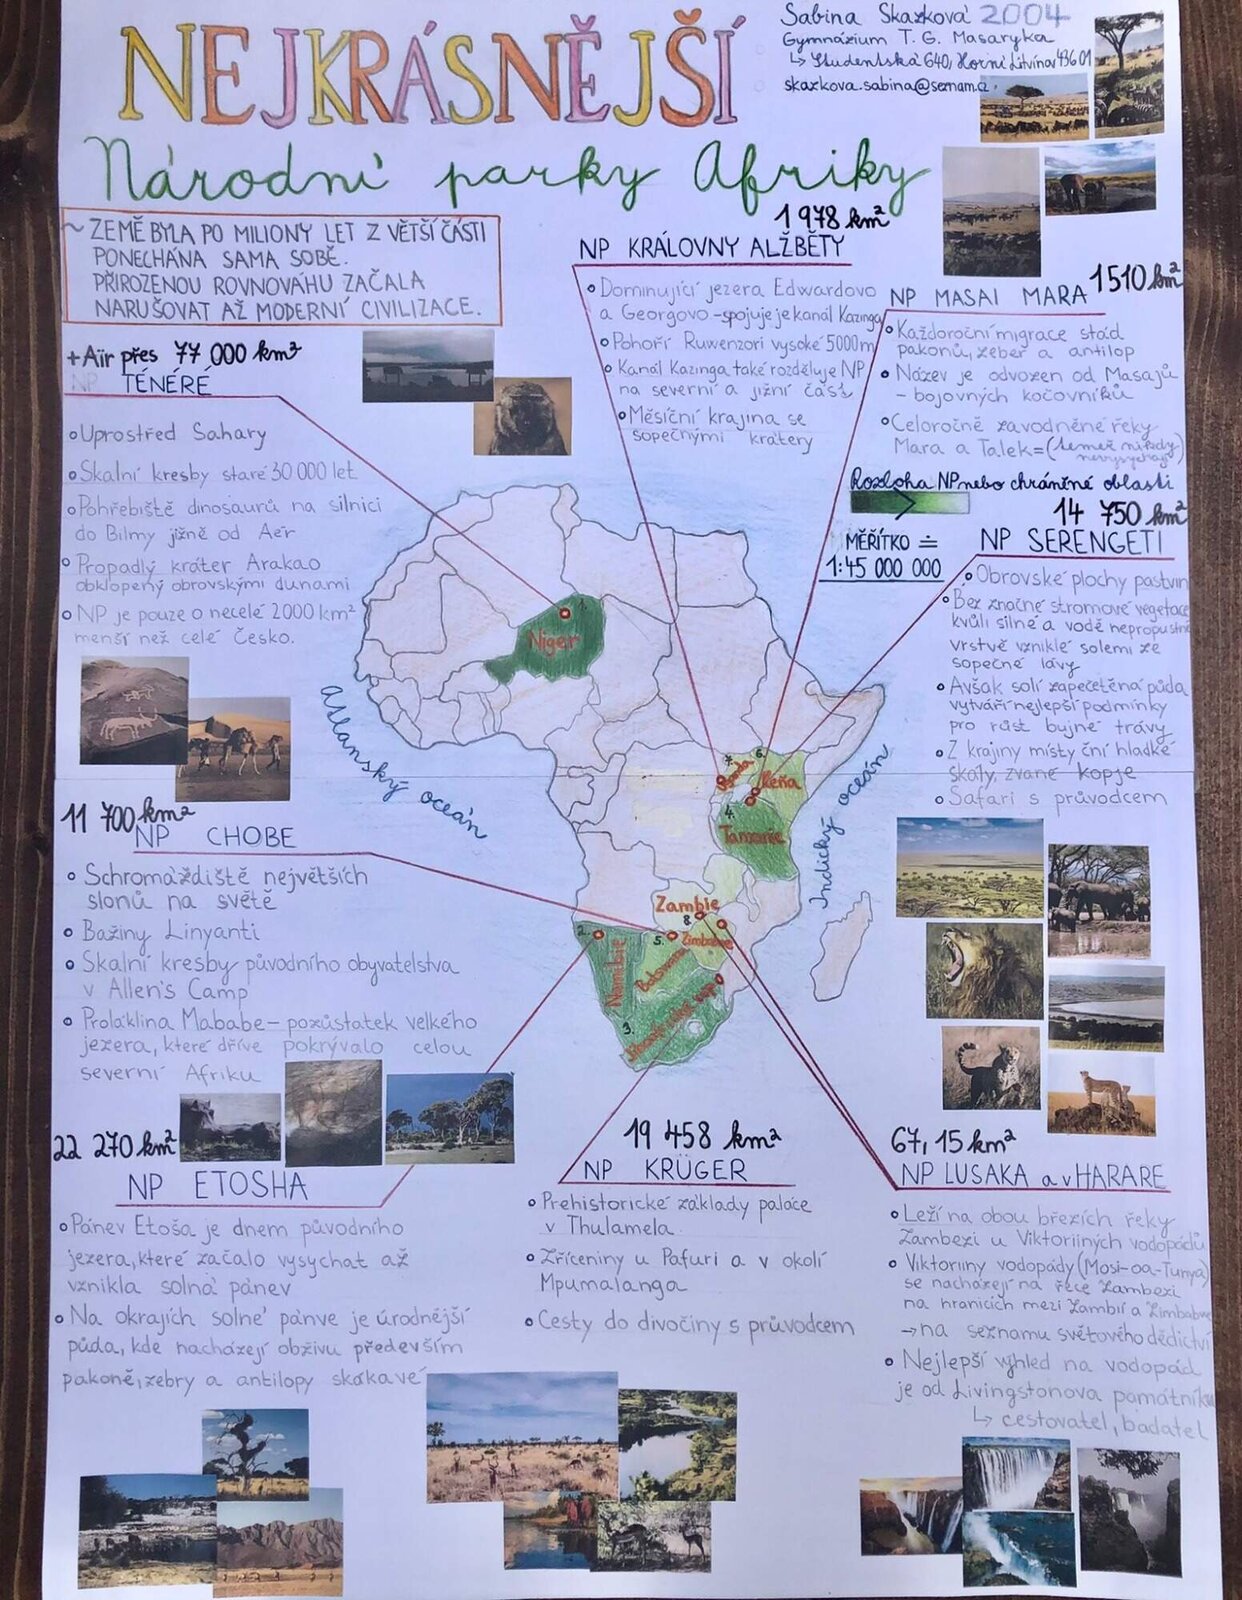 NEJKRÁSNĚJŠÍ
Národní parky Afriky
Sabina Skazková 2004
Gymnázium T. G. Masaryka
↳ Studentská 640, Horní Litvínov 436 01
skazkova.sabina@seznam.cz
~ ZEMĚ BYLA PO MILIONY LET Z VĚTŠÍ ČÁSTI
PONECHÁNA SAMA SOBĚ.
PŘIROZENOU ROVNOVÁHU ZAČALA
NARUŠOVAT AŽ MODERNÍ CIVILIZACE.
+Aïr přes 77 000 km²
NP TÉNÉRÉ
Uprostřed Sahary
Skalní kresby staré 30 000 let
Pohřebiště dinosaurů na silnici
do Bilmy jižně od Aer
Propadlý kráter Arakao
obklopený obrovskými dunami
NP je pouze o necelé 2000 km²
menší než celé Česko.
1 978 km²
NP KRÁLOVNY ALŽBĚTY
Dominující jezera Edwardovo
a Georgovo - spojuje je kanál Kazinga
Pohoří Ruwenzori vysoké 5000m
Kanál Kazinga také rozděluje NP
na severní a jižní část
Měsíční krajina se
sopečnými krátery
1510 km²
NP MASAI MARA
Každoroční migrace stád
pakonů, zeber a antilop
Název je odvozen od Masajů
- bojovných kočovníků
Celoročně zavodněné řeky
Mara a Talek=(téměř nikdy
nevysychají)
Rozloha NP nebo chráněné oblasti
MĚŘÍTKO ≐
1:45 000 000
14 750 km²
NP SERENGETI
Obrovské plochy pastvin
Bez značné stromové vegetace
kvůli silné a vodě nepropustné
vrstvě vzniklé solemi ze
sopečné lávy
Avšak solí zapečetěná půda
vytváří nejlepší podmínky
pro růst bujné trávy
Z krajiny místy ční hladké
skály, zvané kopje
Safari s průvodcem
1.
Niger
Atlanský oceán
Indický oceán
6.
Keňa
4.
Tanzanie
Zambie
8.
Zimbabwe
2.
Namibie
5.
Botswana
3.
11 700 km²
NP CHOBE
Schromaždiště největších
slonů na světě
Bažiny Linyanti
Skalní kresby původního obyvatelstva
v Allen's Camp
Proláklina Mababe - pozůstatek velkého
jezera, které dříve pokrývalo celou
severní Afriku
22 270 km²
NP ETOSHA
Pánev Etoša je dnem původního
jezera, které začalo vysychat až
vznikla solná pánev
Na okrajích solné pánve je úrodnější
půda, kde nacházejí obživu především
pakoně, zebry a antilopy skákavé
19 458 km²
NP KRÜGER
Prehistorické základy paláce
v Thulamela
Zříceniny u Pafuri a v okolí
Mpumalanga
Cesty do divočiny s průvodcem
67,15 km²
NP LUSAKA a v HARARE
Leží na obou březích řeky
Zambezi u Viktoriiných vodopádů
Viktoriiny vodopády (Mosi-oa-Tunya)
se nacházejí na řece Zambezi
na hranicích mezi Zambií a Zimbabwe
→ na seznamu světového dědictví
Nejlepší výhled na vodopád
je od Livingstonova památníku
↳ cestovatel, badatel